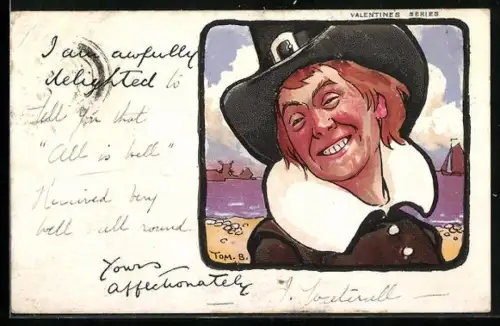 VALENTINES SERIES
I am awfully
delighted to
tell you that
"All is well"
Received very
well all round
Yours
affectionately
TOM. B.